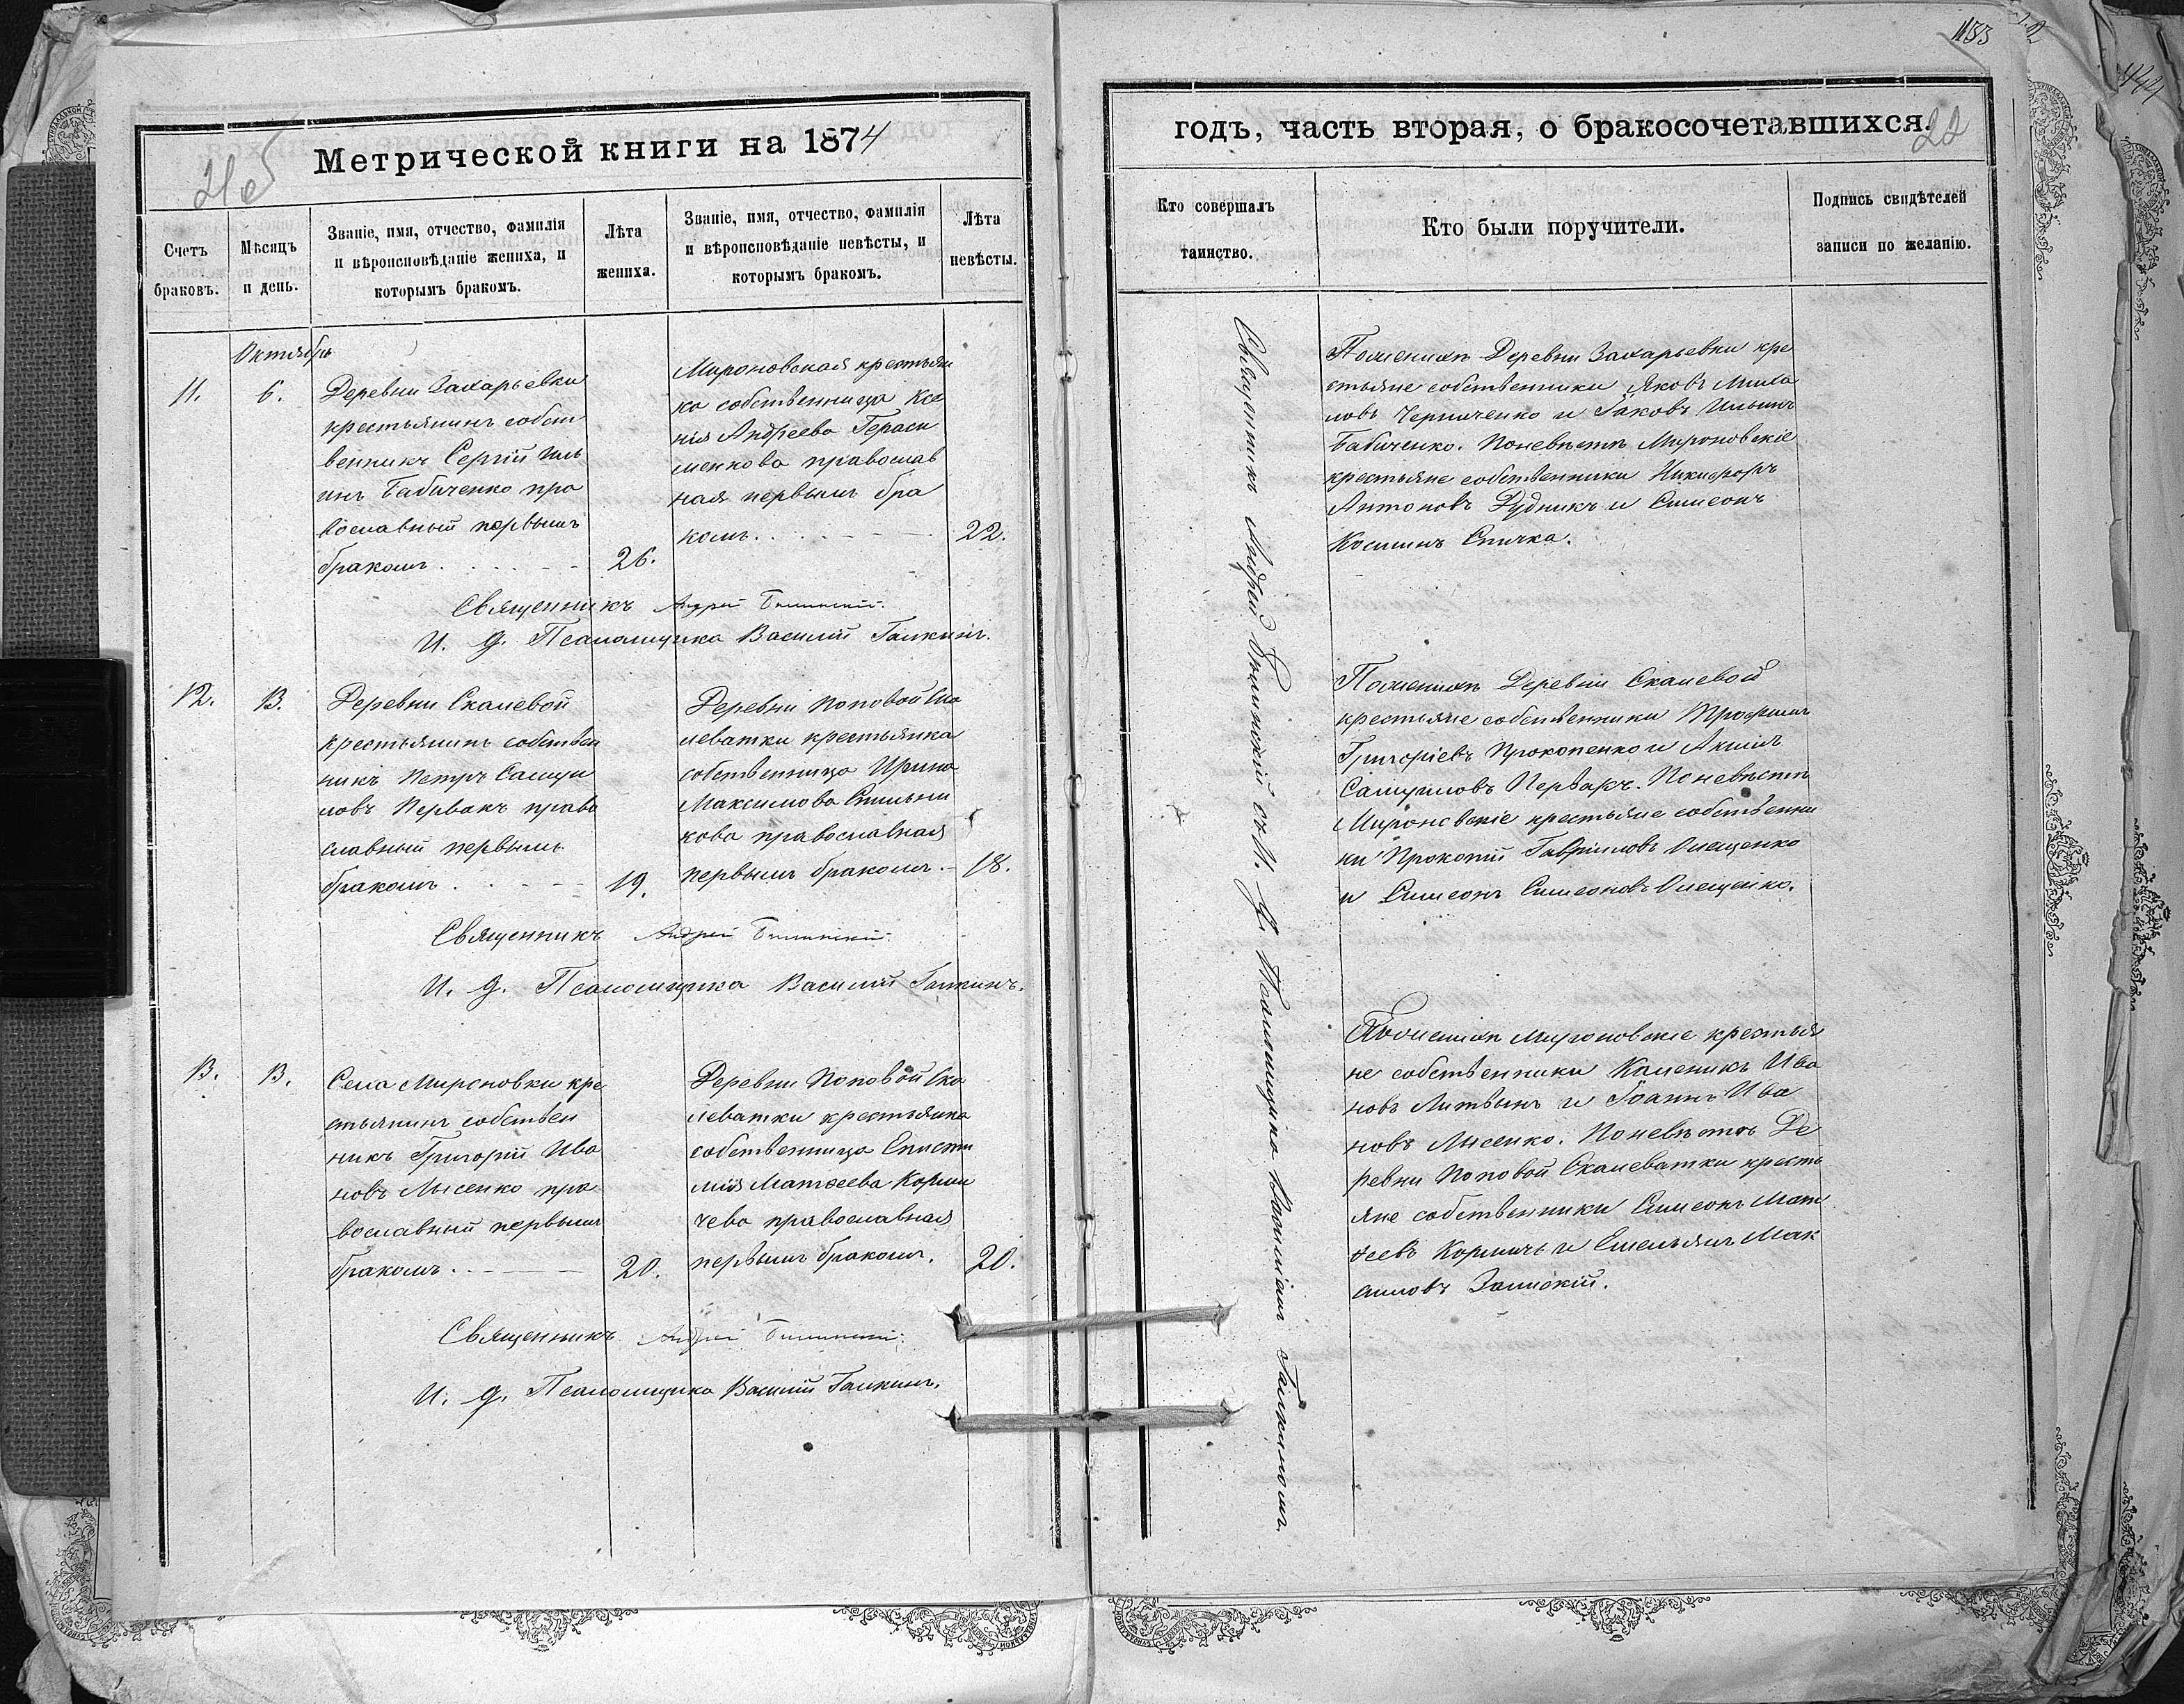 Метрической книги на 1874
Счетъ браковъ.
Мѣсяцъ и день.
Званіе, имя, отчество, фамилія
и вѣроисповѣданіе жениха, и
которымъ бракомъ.
Лѣта
жениха.
Званіе, имя, отчество, фамилія
и вѣроисповѣданіе невѣсты, и
которымъ бракомъ.
Лѣта
невѣсты.
Октябрь
11.
6.
Деревни Захарьевки
крестьянинъ собст
венникъ Сергій Иль
инъ Бабиченко пра
вославный первымъ
бракомъ
26.
Мироновская крестьян
ка собственница Ксе
нія Андреева Гераси
менкова православ
ная первымъ бра
комъ
22.
Священникъ Андрей
И. д. Псаломщика Василій Галкинъ.
12.
13.
Деревни Скалевой
крестьянинъ собствен
никъ Петръ Самуи
ловъ Первакъ право
славный первымъ
бракомъ
19.
Деревни Поповой Ска
леватки крестьянка
собственница Ирина
Максимова
кова православная
первымъ бракомъ
18.
Священникъ Андрей
И. д. Псаломщика Василій Галкинъ.
13.
13.
Села Мироновки кре
стьянинъ собствен
никъ Григорій Ива
новъ Лысенко пра
вославный первымъ
бракомъ
20.
Деревни Поповой Ска
леватки крестьянка
собственница Еписти
мія Матѳеева Корми
чева православная
первымъ бракомъ.
20.
Священникъ Андрей
И. д. Псаломщика Василій Галкинъ.
183
444
годъ, часть вторая, о бракосочетавшихся.
22
Кто совершалъ
таинство.
Кто были поручители.
Подпись свидѣтелей
записи по желанію.
Священникъ Андрей съ И. д. Псаломщика Василіемъ Галкинымъ.
По женихѣ Деревни Захарьевки кре
стьяне собственники Яковъ Михаи
ловъ и Іаковъ Ильинъ
Бабиченко. По невѣстѣ Мироновскіе
крестьяне собственники Никифоръ
Антоновъ Дудникъ и Симеонъ
Косминъ Спичка.
По женихѣ Деревни Скалевой
крестьяне собственники Трофимъ
Григоріевъ Прокопенко и Акимъ
Самуиловъ Первакъ. По невѣстѣ
Мироновскіе крестьяне собственни
ки Прокопій Гавриловъ Онещенко
и Симеонъ Симеоновъ Онещенко.
По женихѣ Мироновскіе крестья
не собственники Каленикъ Ива
новъ Литвинъ и Іоаннъ Ива
новъ Лысенко. По невѣстѣ Де
ревни Поповой Скалеватки кресть
яне собственники Симеонъ Мат
ѳеевъ Кормичъ и Емельянъ Мак
симовъ